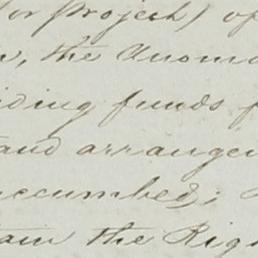 (or project) of
the
iding funds f
and arrange
ccumbed;
ain the Rig